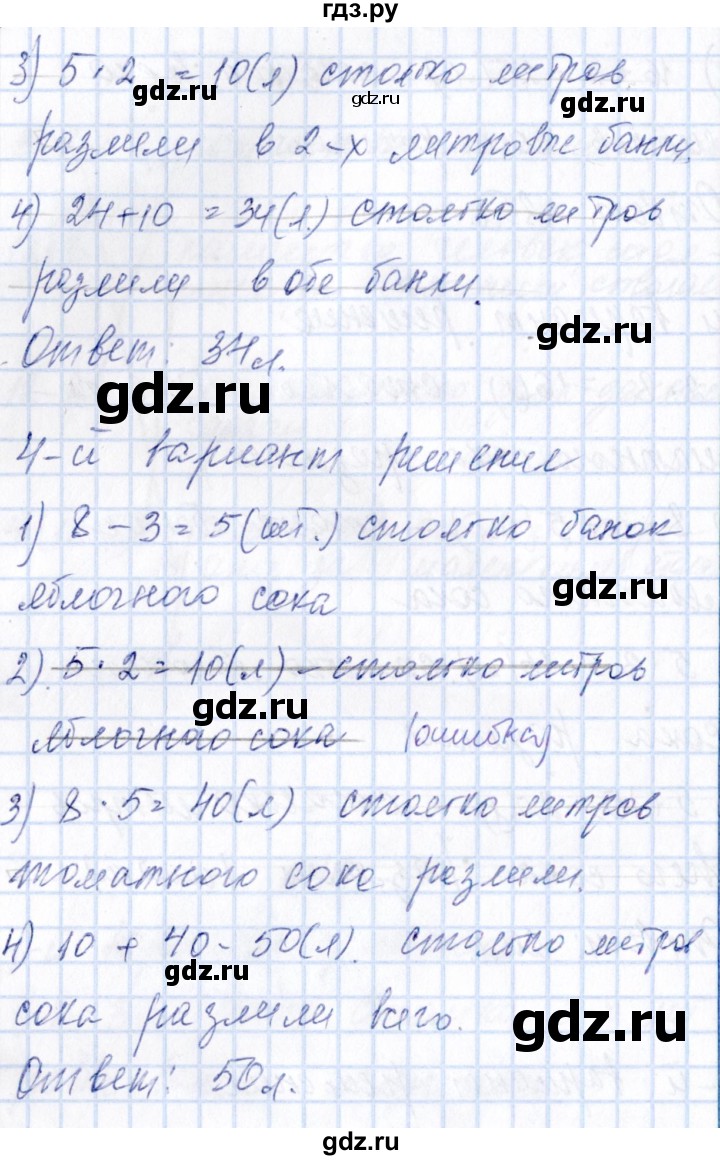 гдз.ру
3) 5 · 2 = 10(л) столько литров
gdz.ru
gdz.ru
разлили в 2-х литровые банки.
4) 24+10 = 34(л.) столько литров
gdz.ru
разлили в обе банки.
gdz.ru
Ответ: 34 л.
gdz.ru
4-й вариант решения
1) 8 - 3 = 5 (шт.) столько банок
gdz.ru
яблочного сока
2) 5 · 2 = 10(л) - столько литров
gdz.ru
яблочного сока (ошибка)
3) 8 · 5 = 40(л) столько литров
томатного сока разлили.
4) 10 + 40 - 50(л). столько литров
gdz.ru
сока разлили всего.
gdz.ru
Ответ: 50 л.
gdz.ru